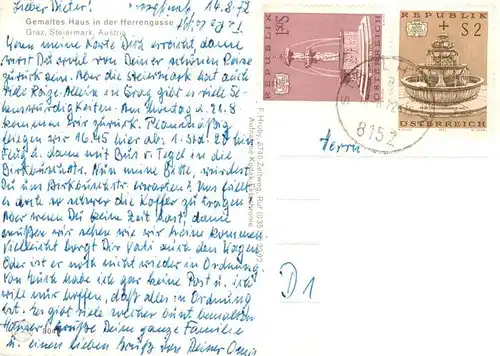 Lieber Dieter! 16.8.72
Gemaltes Haus in der Herrengasse
Graz, Steiermark, Austria
Wenn meine Karte Dich erreicht, dann
wirst Du wohl von Deiner schönen Reise
zurück sein. Aber die Steiermark hat auch
viele Reize. Allein in Graz gibt es viele Se-
henswürdigkeiten. Am Montag d. 21.8.
kommen wir zurück. Planmäßig
fliegen wir 16.45 hier ab. 1 Std. 25 min
Flug u. dann mit Bus v. Tegel in die
Nun meine Bitte, würdest
Du uns erwarten? Uns fällt
es doch so schwer die Koffer zu tragen
Aber wenn Du keine Zeit hast, dann
müssen wir sehen wie wir heim kommen.
Vielleicht borgt Dir Vati auch den Wagen.
Oder ist er noch nicht wieder in Ordnung
Von Euch habe ich gar keine Post u. ich
will nur hoffen, daß alles in Ordnung
ist. Es gibt hier viele bunt bemalten
Häuser. Grüße Deine ganze Familie
u. einen lieben Gruß von Deiner Omi
REPUBLIK
ÖSTERREICH
REPUBLIK
+ S2
ÖSTERREICH
8152
Herrn
D1